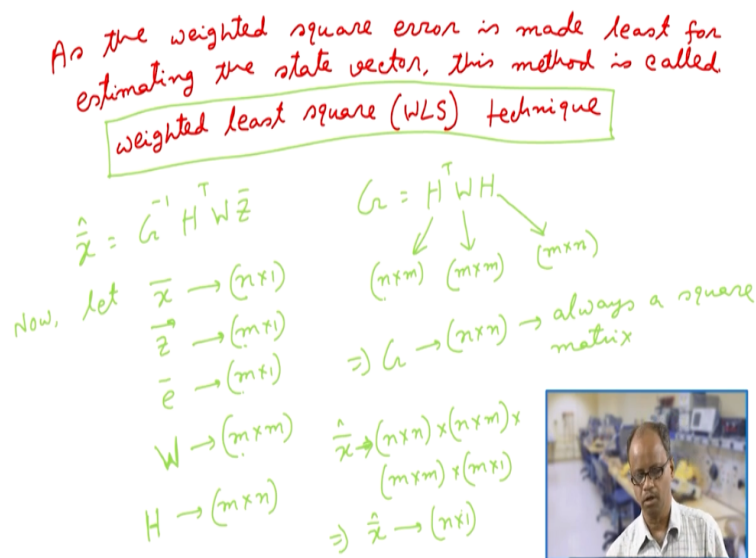 As the weighted square error is made least for
estimating the state vector, this method is called
weighted least square (WLS) technique
x̂̄ = G⁻¹ Hᵀ W z̄
G = Hᵀ W H
(n×m) (m×m) (m×n)
Now, let x̄ → (n×1)
z̄ → (m×1)
ē → (m×1)
W → (m×m)
H → (m×n)
⇒ G → (n×n) → always a square
matrix
x̂̄ → (n×n) × (n×m) ×
(m×m) × (m×1)
⇒ x̂̄ → (n×1)